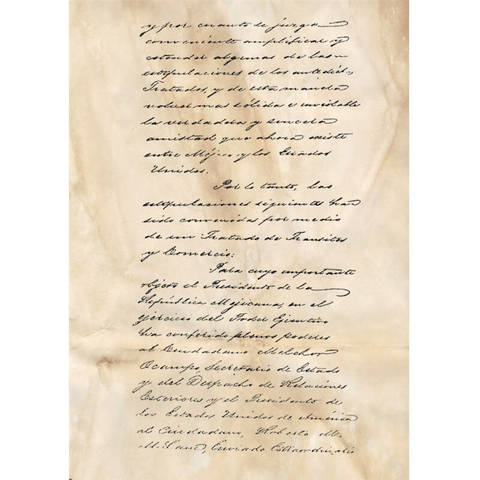 y por cuanto se juzga
conveniente amplificar y
estender algunas de las
estipulaciones de los antedichos
Tratados, y de esta manera
volver mas sólida e inviolable
la verdadera y sincera
amistad que ahora existe
entre Méjico y los Estados
Unidos.
Por lo tanto, las
estipulaciones siguientes han
sido convenidas por medio
de un Tratado de Transitos
y Comercio:
Para cuyo importante
objeto el Presidente de la
República Mejicana, en el
ejercicio del Poder Ejecutivo
ha conferido plenos poderes
al Ciudadano Melchor
Ocampo, Secretario de Estado
y del Despacho de Relaciones
Exteriores y el Presidente de
los Estados Unidos de América
al Ciudadano, Roberto M.
McLane, Enviado Extraordinario